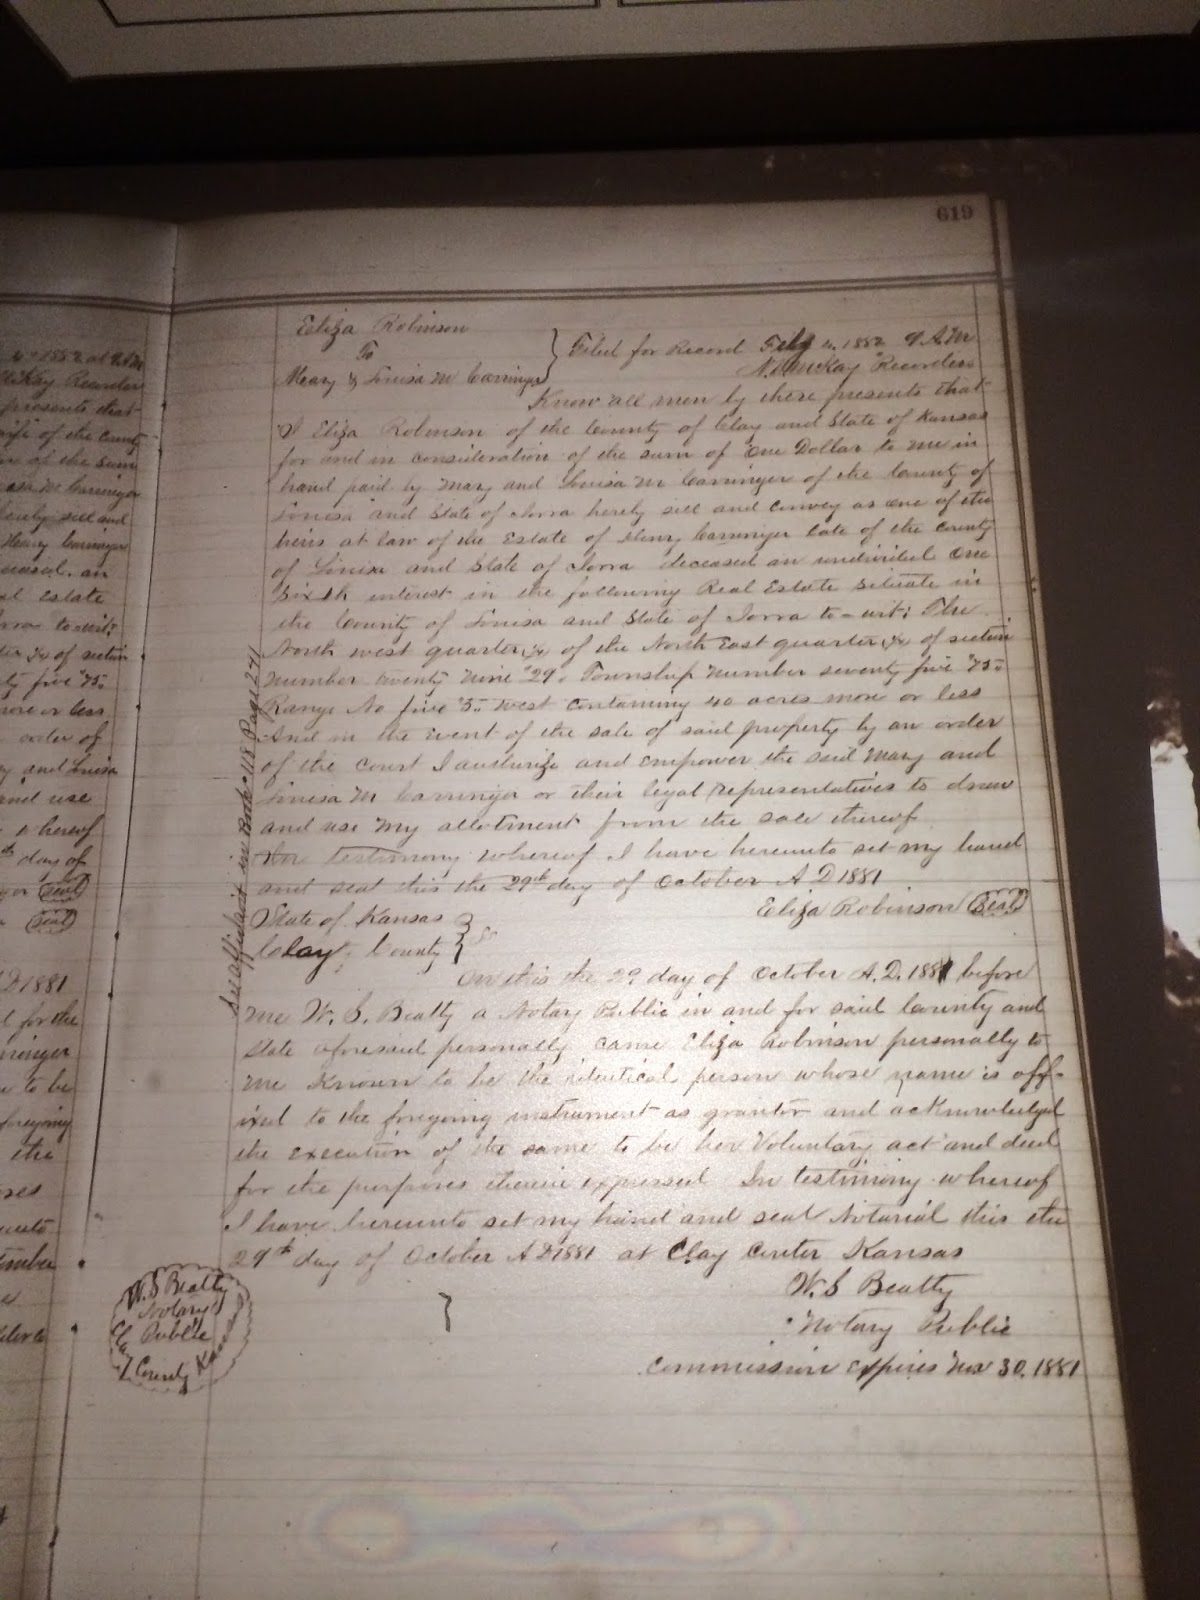 619
Eliza Robinson
To
Mary & Louisa M Carringer
Filed for Record Feby 4. 1882 9 A.M
McKay Recorder
Know all men by these presents that
I Eliza Robinson of the County of Clay and State of Kansas
for and in consideration of the sum of One Dollar to me in
hand paid by Mary and Louisa M Carringer of the County of
Louisa and State of Iowa hereby sell and convey as one of the
heirs at law of the Estate of Henry Carringer late of the County
of Louisa and State of Iowa deceased an undivided One
Sixth interest in the following Real Estate Situate in
the County of Louisa and State of Iowa to-wit: The
North west quarter ¼ of the North East quarter ¼ of section
Number twenty Nine "29" Township Number seventy five "75"
Range No five "5" West containing 40 acres more or less
And in the event of the sale of said property by an order
of the Court I authorize and empower the said Mary and
Louisa M Carringer or their legal representatives to draw
and use my allotment from the sale thereof
testimony whereof I have hereunto set my hand
and seal this the 29th day of October A D 1881
Eliza Robinson (Seal)
State of Kansas
Clay County } SS
On this the 29 day of October A.D. 1881 before
me W. S. Beatty a Notary Public in and for said County and
State aforesaid personally came Eliza Robinson personally to
me Known to be the identical person whose name is aff-
ixed to the foregoing instrument as grantor and acknowledged
the execution of the same to be her Voluntary act and deed
for the purposes therein expressed In testimony whereof
I have hereunto set my hand and seal Notarial this the
29th day of October A D 1881 at Clay Center Kansas
W. S Beatty
Notary Public
Commission expires Nov 30. 1881
W. S Beatty
Notary
Public
Clay County Kansas
See affidavit in Book 118 Page 241
4 1882 at 9 AM
McKay Recorder
presents that
wife of the County
of the Sum
Louisa M Carringer
hereby sell and
Henry Carringer
deceased. an
Real Estate
Iowa to-wit:
¼ of section
seventy five "75"
more or less
order of
Mary and Louisa
and use
thereof
th day of
(Seal)
(Seal)
AD 1881
for the
Carringer
to be
foregoing
the